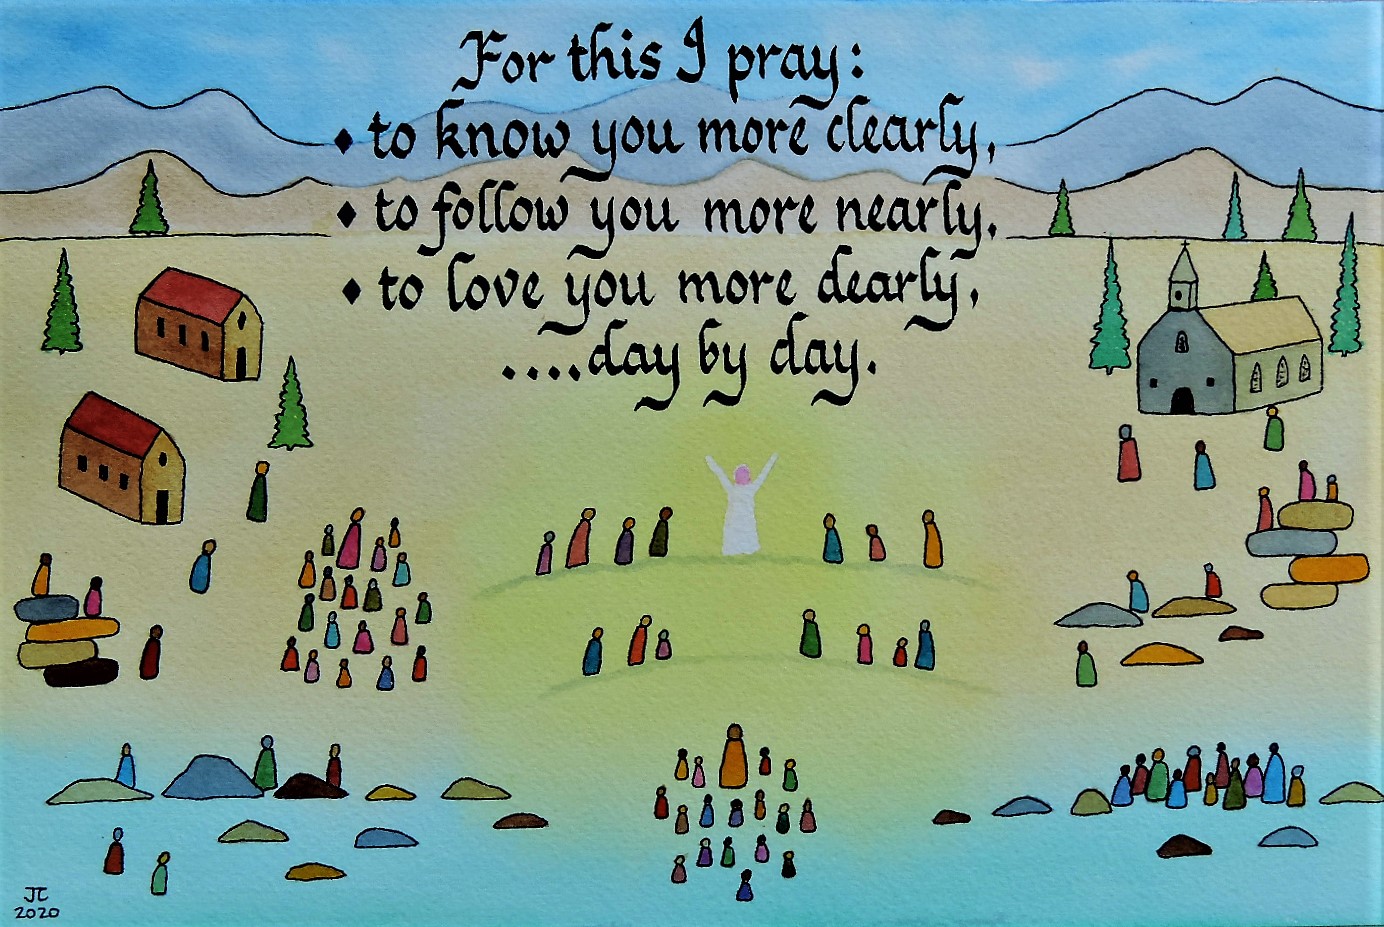 For this I pray:
♦ to know you more clearly,
♦ to follow you more nearly,
♦ to love you more dearly,
....day by day.
JC
2020